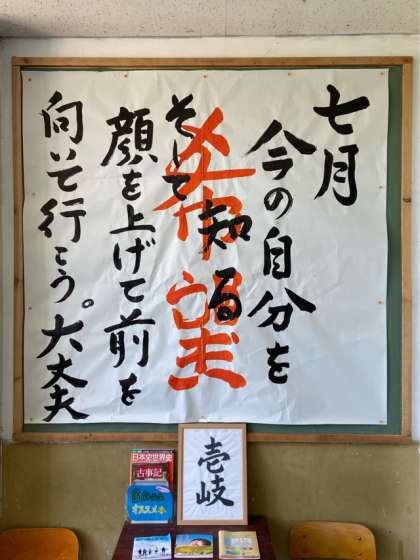 七月
今の自分を
知る
希望
そして
顔を上げて前を
向いて行こう。大丈夫
壱岐
日本史世界史
古事記
オススメ本